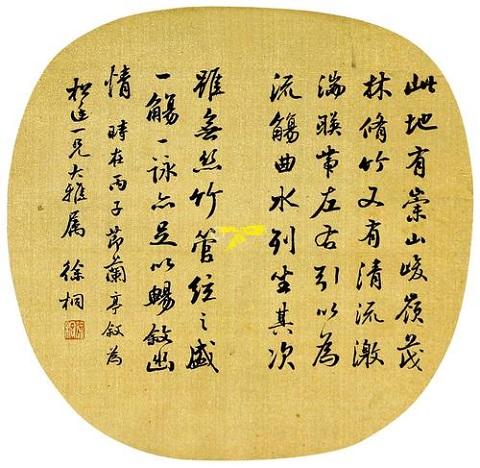 此地有崇山峻嶺茂
林脩竹又有清流激
湍暎帶左右引以為
流觴曲水列坐其次
雖無絲竹管弦之盛
一觴一詠亦足以暢敘幽
情 時在丙子節蘭亭敘為
松廷一兄大雅屬 徐桐